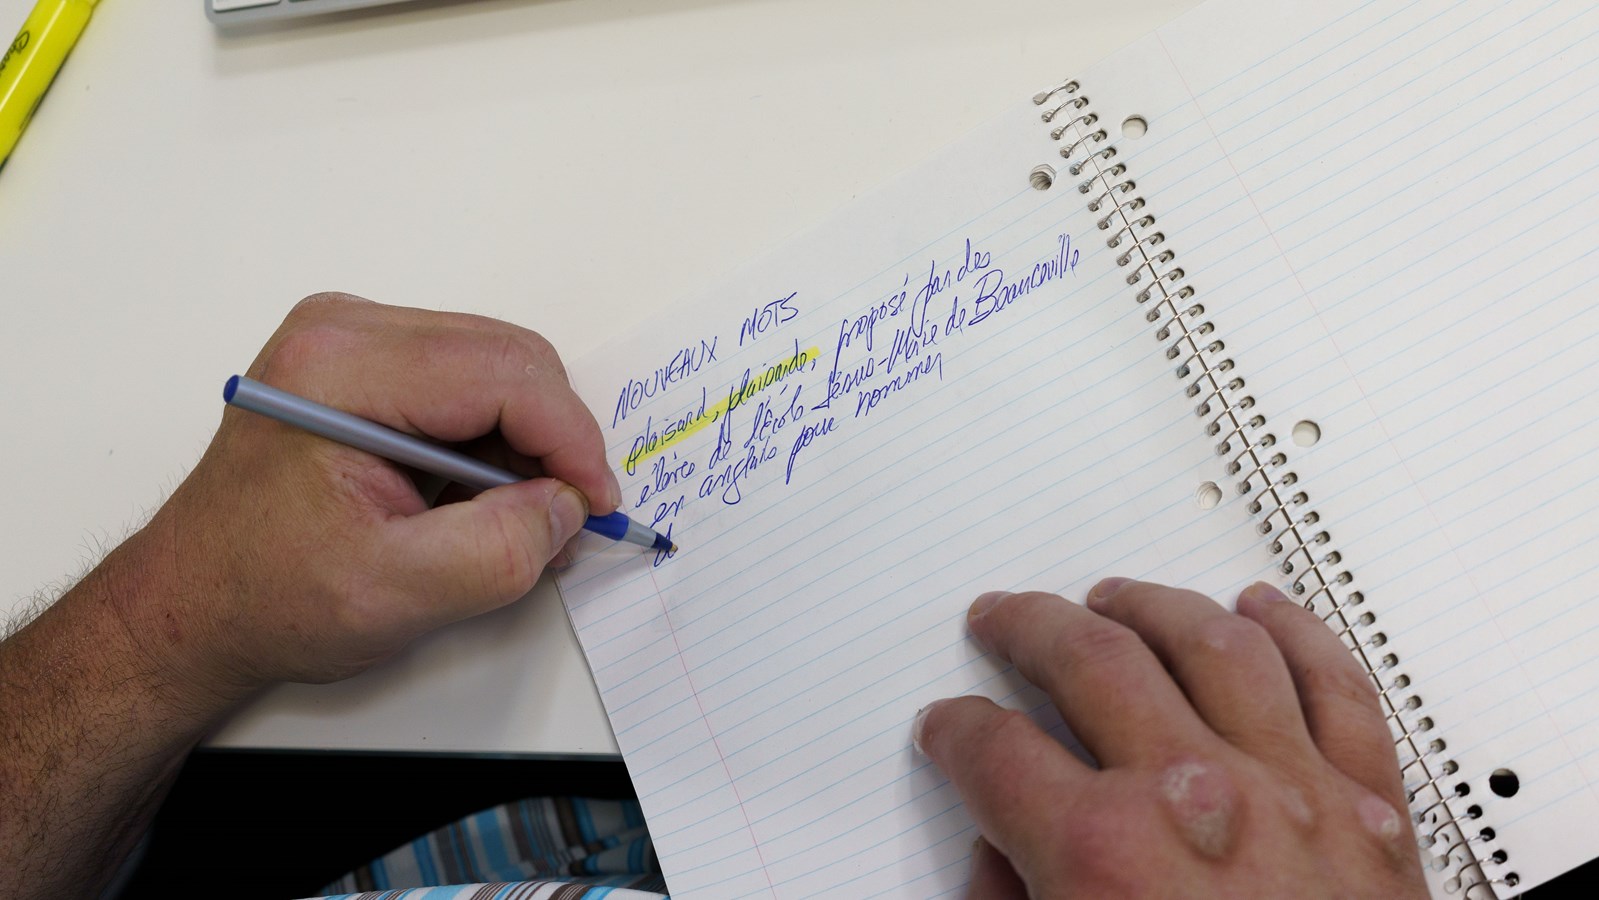 NOUVEAUX MOTS
plaisard, plaisarde, proposé par des
élèves de l'École Jésus-Marie de Beauceville
en anglais pour nommer
d